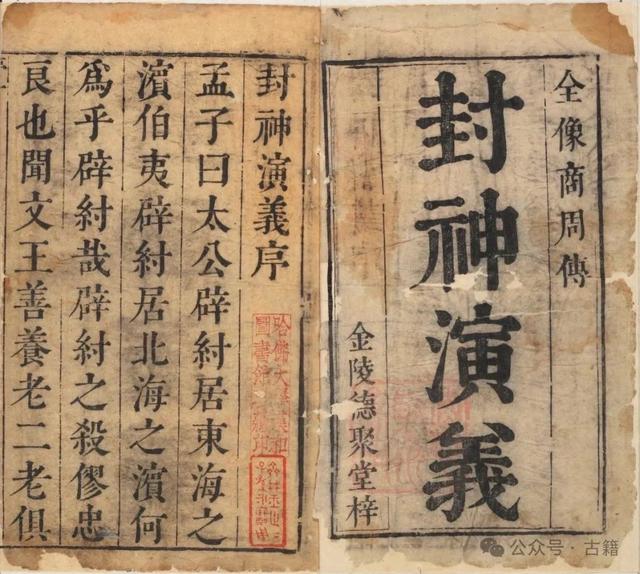 全像商周傳
封神演義
金陵德聚堂梓
封神演義序
孟子曰太公辟紂居東海之
濱伯夷辟紂居北海之濱何
爲乎辟紂哉辟紂之殺僇忠
良也聞文王善養老二老俱
哈佛大學漢和
圖書館珍藏印
公众号 · 古籍